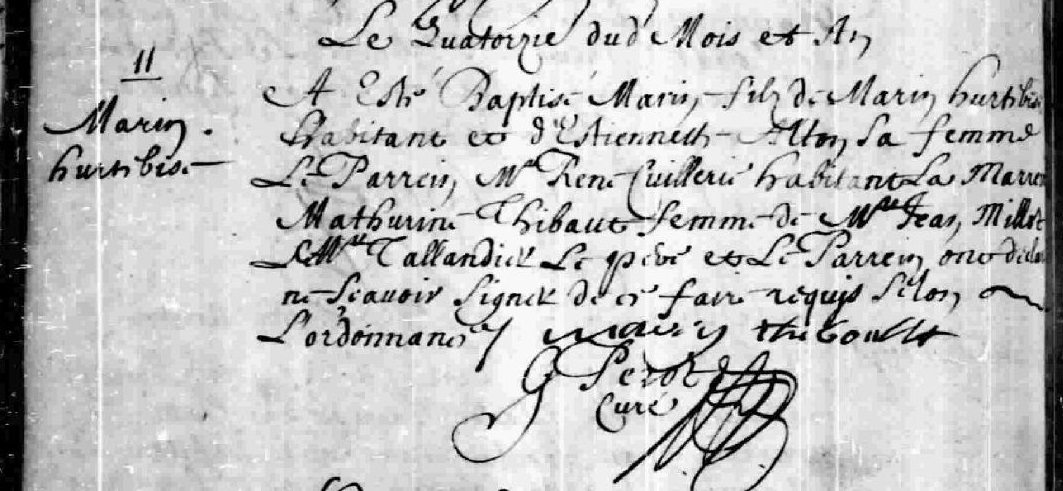 Le Quatorzie dud Mois et An
11
Marin
hurtibise
A Esté Baptisé Marin filz de Marin hurtibise
Habitant et d'Estiennette Alton sa femme
Le Parrein Mr René Cuillerié habitant La Marre
Mathurine Thibaut femme de Mre Jean Millot
Mre Tallandier Le père et Le Parrein ont déclaré
ne sçavoir signer de ce faire requis selon
L'ordonnance
thiboullt
G Perot
Curé